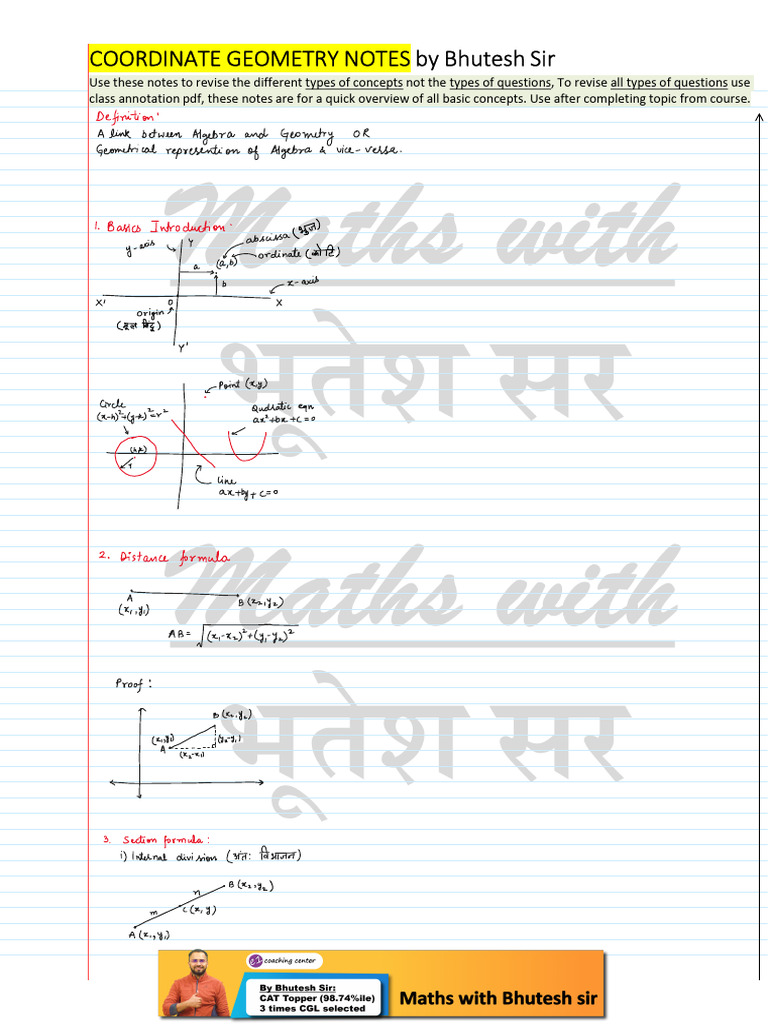 COORDINATE GEOMETRY NOTES by Bhutesh Sir
Use these notes to revise the different types of concepts not the types of questions, To revise all types of questions use
class annotation pdf, these notes are for a quick overview of all basic concepts. Use after completing topic from course.
Definition:
A link between Algebra and Geometry OR
Geometrical represention of Algebra & vice-versa.
Maths with
भूतेश सर
1. Basics Introduction:
y-axis
Y
abscissa (भुज)
ordinate (कोटि)
(a,b)
a
b
x-axis
X'
O
X
origin
(मूल बिंदु)
Y'
Point (x,y)
Circle
(x-h)²+(y-k)²=r²
Qudratic eqn
ax²+bx+c=0
(h,k)
r
Line
ax+by+c=0
2. Distance formula
Maths with
भूतेश सर
A
(x₁,y₁)
B(x₂,y₂)
AB = √(x₁-x₂)²+(y₁-y₂)²
Proof:
B(x₂,y₂)
(x₁,y₁)
A
(y₂-y₁)
(x₂-x₁)
3. Section formula:
i) Internal division (अंत: विभाजन)
B(x₂,y₂)
n
C(x,y)
m
A(x₁,y₁)
e1 coaching center
By Bhutesh Sir:
CAT Topper (98.74%ile)
3 times CGL selected
Maths with Bhutesh sir